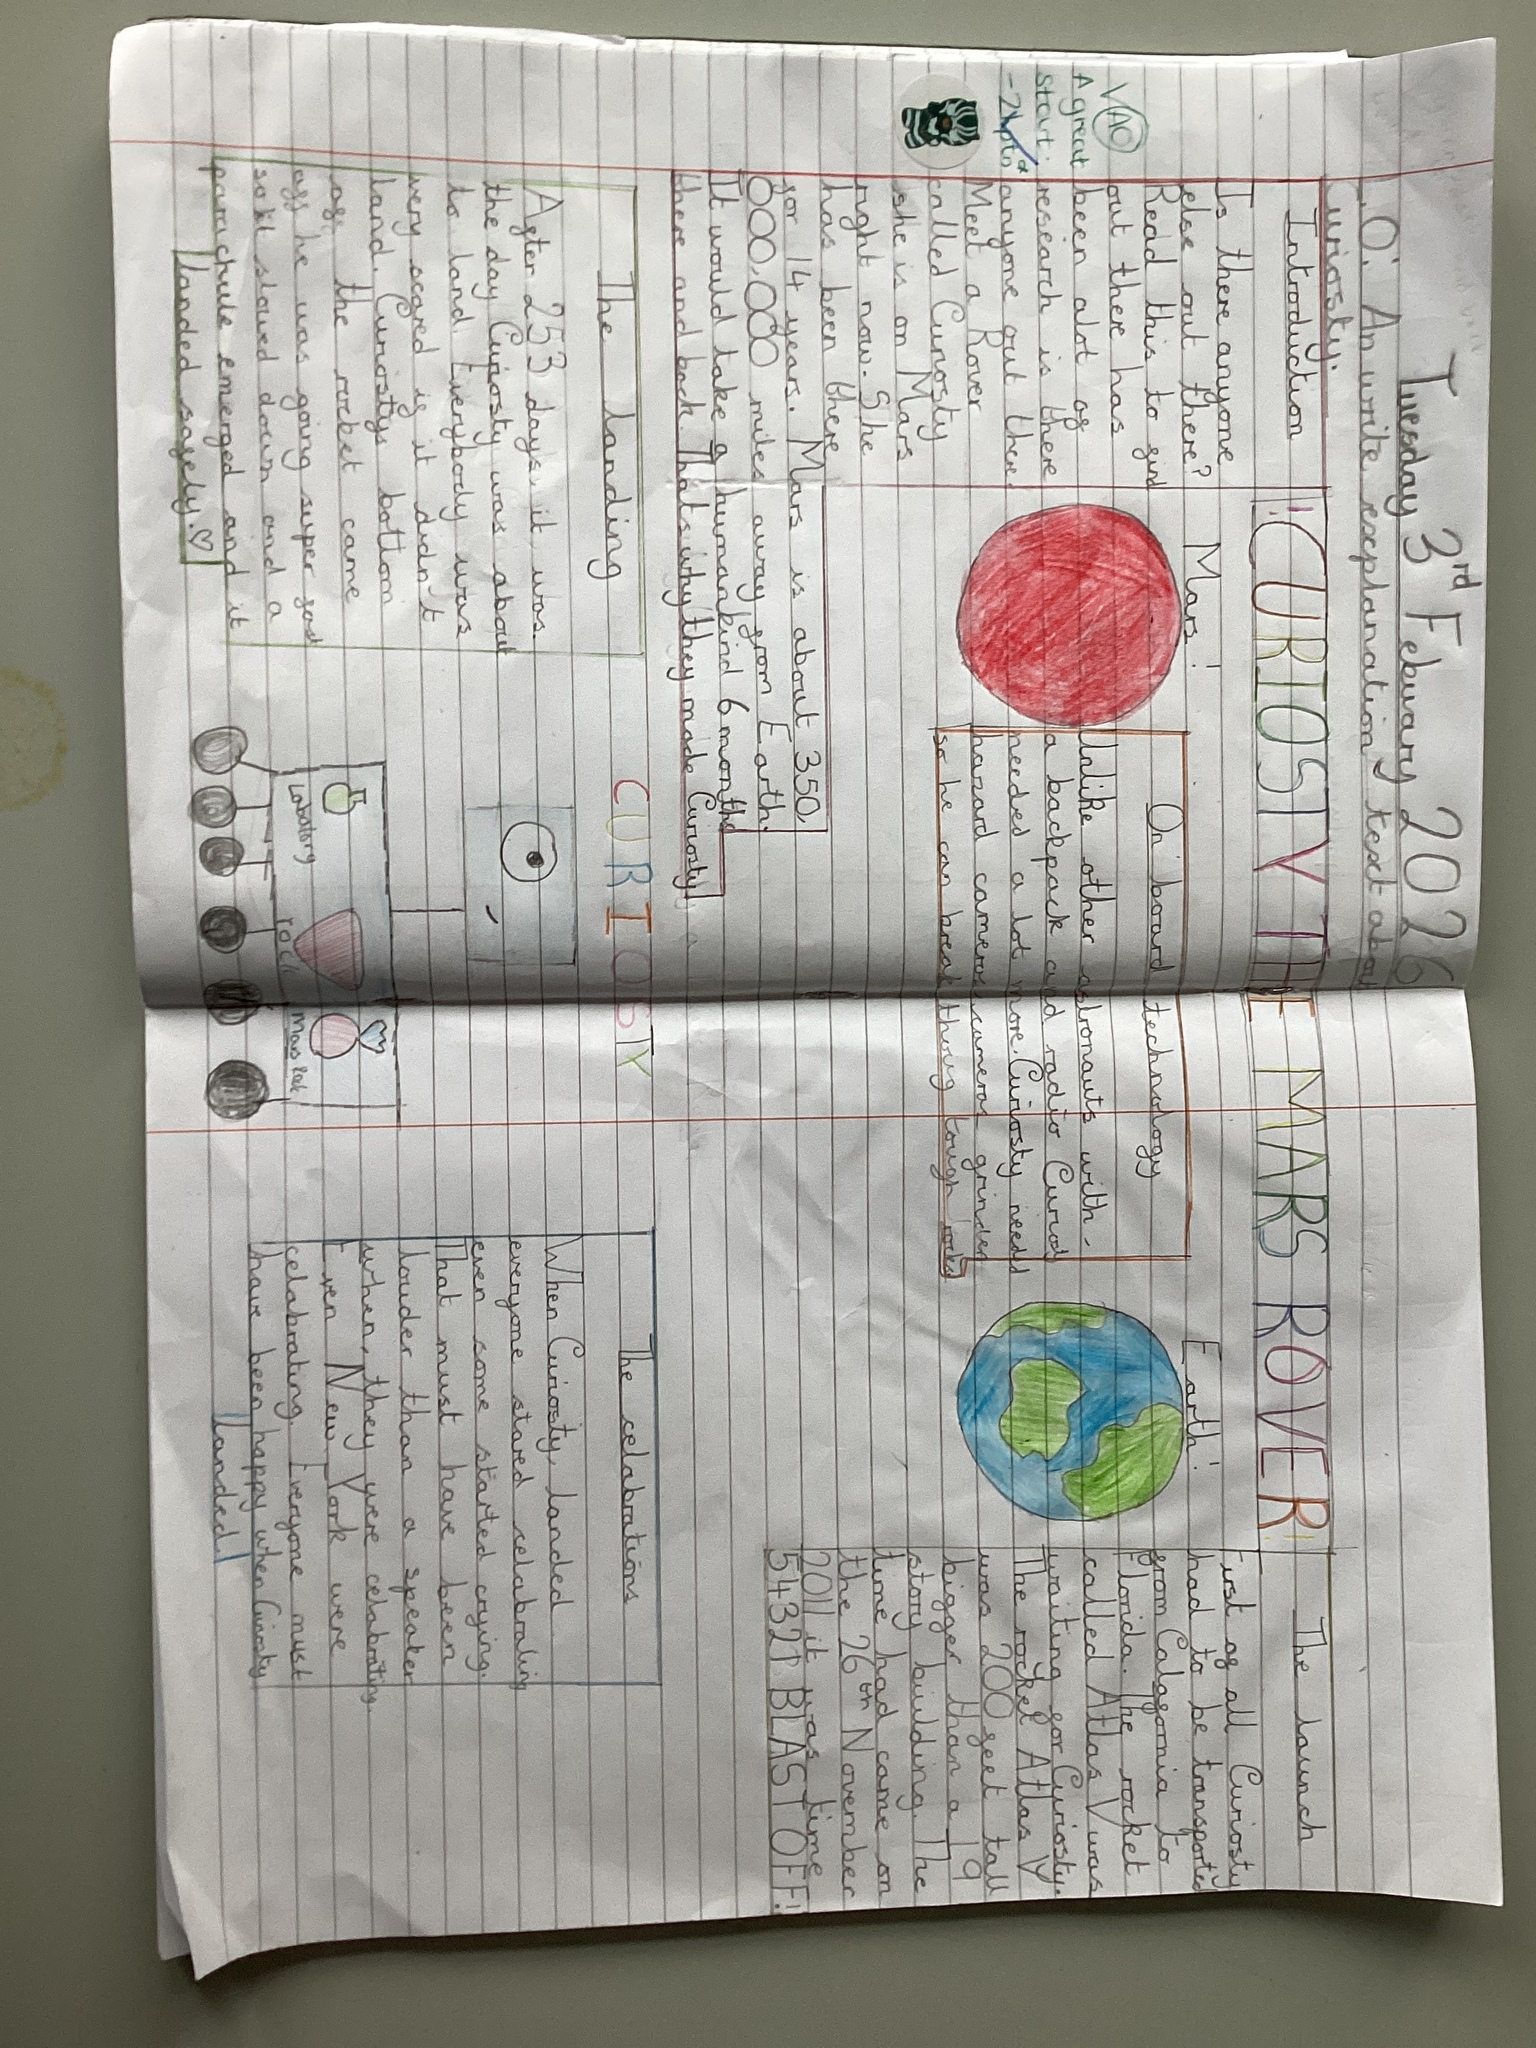 Tuesday 3rd Febuary 2026
L.O: An write explanation text about
Curiosty.
!CURIOSTY THE MARS ROVER!
VAO
A great
start.
-2hpts
Introduction
Is there anyone
else out there?
Read this to find
out there has
been alot of
research is there
anyone out there.
Meet a Rover
called Curiosty
she is on Mars
right now. She
has been there
for 14 years. Mars is about 350,
000,000 miles away from Earth.
It would take a humankind 6 months
there and back. Thats why they made Curiosty.
Mars!
On board technology
Unlike other astronauts with
a backpack and radio Curiosty
needed a lot more. Curiosty needs
hazard cameras, cameras grinders
so he can break thoug tough rocks
Earth!
The launch
First of all Curiosty
had to be transported
from Calafornia to
Florida. The rocket
called Atlas V was
waiting for Curiosty.
The rocket Atlas V
was 200 feet tall
bigger than a 19
story building. The
time had come on
the 26 on November
2011 it was time
54321 BLAST OFF!
The landing
After 253 days, it was
the day Curiosty was about
to land. Everybody was
very scared if it didn't
land. Curiostys bottom
of the rocket came
off he was going super fast
so it slowed down and a
parachute emerged and it
landed safely.♡
CURIOSTY
Labatory
rock
The celabrations
When Curiosty landed
everyone stared celabrating
even some started crying.
That must have been
louder than a speaker
when, they were celabrating.
Even New York were
celabrating. Everyone must
have been happy when Curiosty
landed!